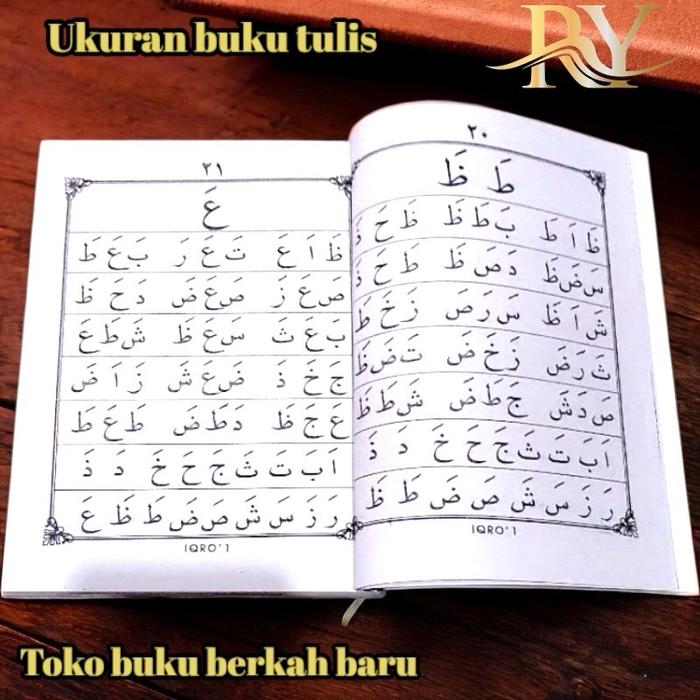 Ukuran buku tulis
RY
٢٠
طَ ظَ
ظَ اَ طَ بَ طَ ظَ ظَ حَ
سَ ضَ ظَ دَ صَ ظَ طَ حَ
شَ اَ ظَ سَ رَ صَ زَ خَ
ثَ رَ ضَ زَ خَ ضَ تَ ضَ ظَ
صَ دَ شَ جَ طَ ضَ شَ طَ ظَ
اَ بَ تَ ثَ جَ حَ خَ دَ ذَ
رَ زَ سَ شَ صَ ضَ طَ ظَ
IQRO' 1
٢١
عَ
ظَ اَ عَ تَ عَ رَ بَ عَ طَ
صَ عَ زَ صَ عَ ضَ دَ حَ ظَ
بَ عَ ثَ سَ عَ ظَ شَ طَ عَ
جَ خَ ذَ ضَ عَ شَ زَ اَ ضَ
عَ جَ ظَ دَ طَ ضَ طَ عَ طَ
اَ بَ تَ ثَ جَ حَ خَ دَ ذَ
رَ زَ سَ شَ صَ ضَ طَ ظَ عَ
IQRO' 1
Toko buku berkah baru